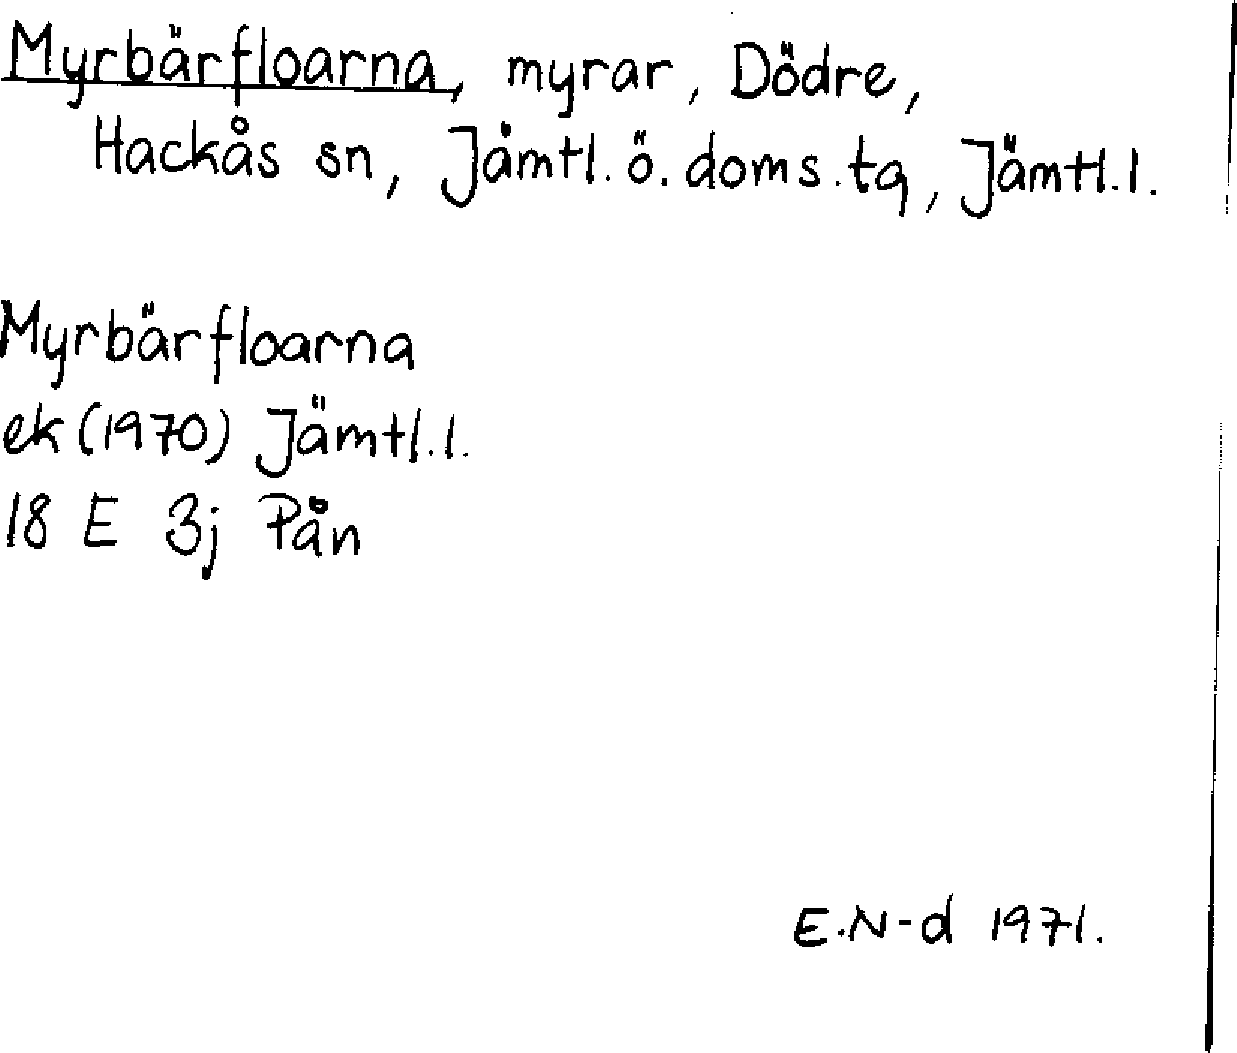 Myrbärfloarna, myrar, Dödre,
Hackås sn, Jämtl. ö. doms. tg, Jämtl. l.
Myrbärfloarna
ek (1970) Jämtl. l.
18 E 3j Pån
E.N-d 1971.